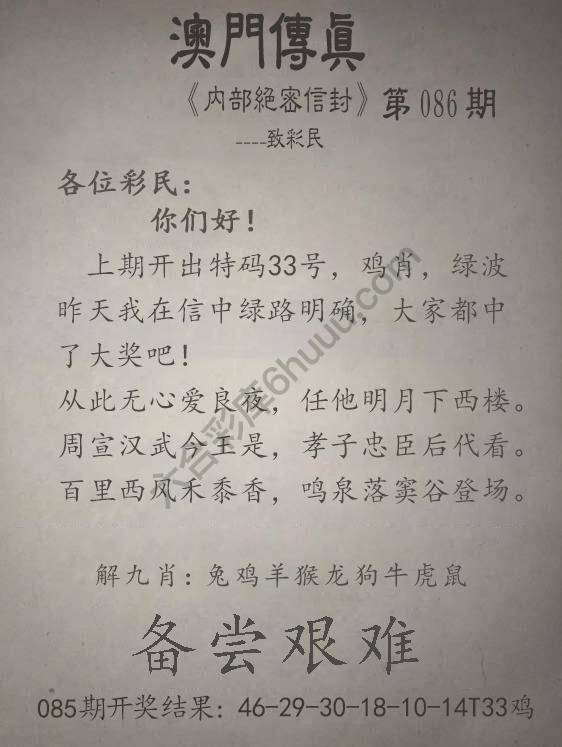 澳門傳眞
《内部絕密信封》第086期
----致彩民
各位彩民：
你们好！
上期开出特码33号，鸡肖，绿波
昨天我在信中绿路明确，大家都中
了大奖吧！
从此无心爱良夜，任他明月下西楼。
周宣汉武今王是，孝子忠臣后代看。
百里西风禾黍香，鸣泉落窦谷登场。
六合彩库6huuu.com
解九肖：兔鸡羊猴龙狗牛虎鼠
备尝艰难
085期开奖结果：46-29-30-18-10-14T33鸡